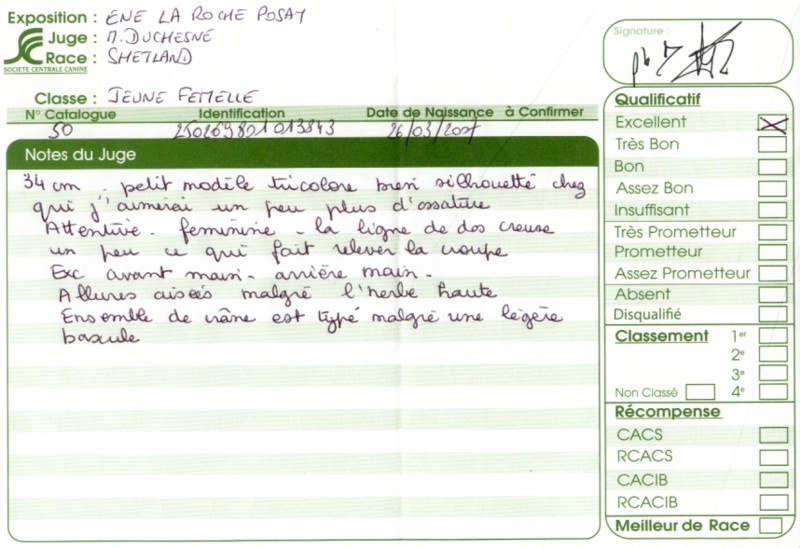 Exposition : ENE LA ROCHE POSAY
Juge : M. DUCHESNE
Race : SHETLAND
SOCIETE CENTRALE CANINE
Classe : JEUNE FEMELLE
N° Catalogue Identification Date de Naissance à Confirmer
50 250269801013843 26/03/2007
Notes du Juge
34 cm . petit modèle tricolore bien silhouetté chez
qui j'aimerai un peu plus d'ossature
Attentive - feminine - la ligne de dos creuse
un peu ce qui fait relever la croupe
Exc avant main - arrière main -
Allures aisées malgré l'herbe haute
Ensemble de crâne est typé malgré une légère
bascule
Signature :
Qualificatif
Excellent
Très Bon
Bon
Assez Bon
Insuffisant
Très Prometteur
Prometteur
Assez Prometteur
Absent
Disqualifié
Classement 1er
2e
3e
Non Classé 4e
Récompense
CACS
RCACS
CACIB
RCACIB
Meilleur de Race